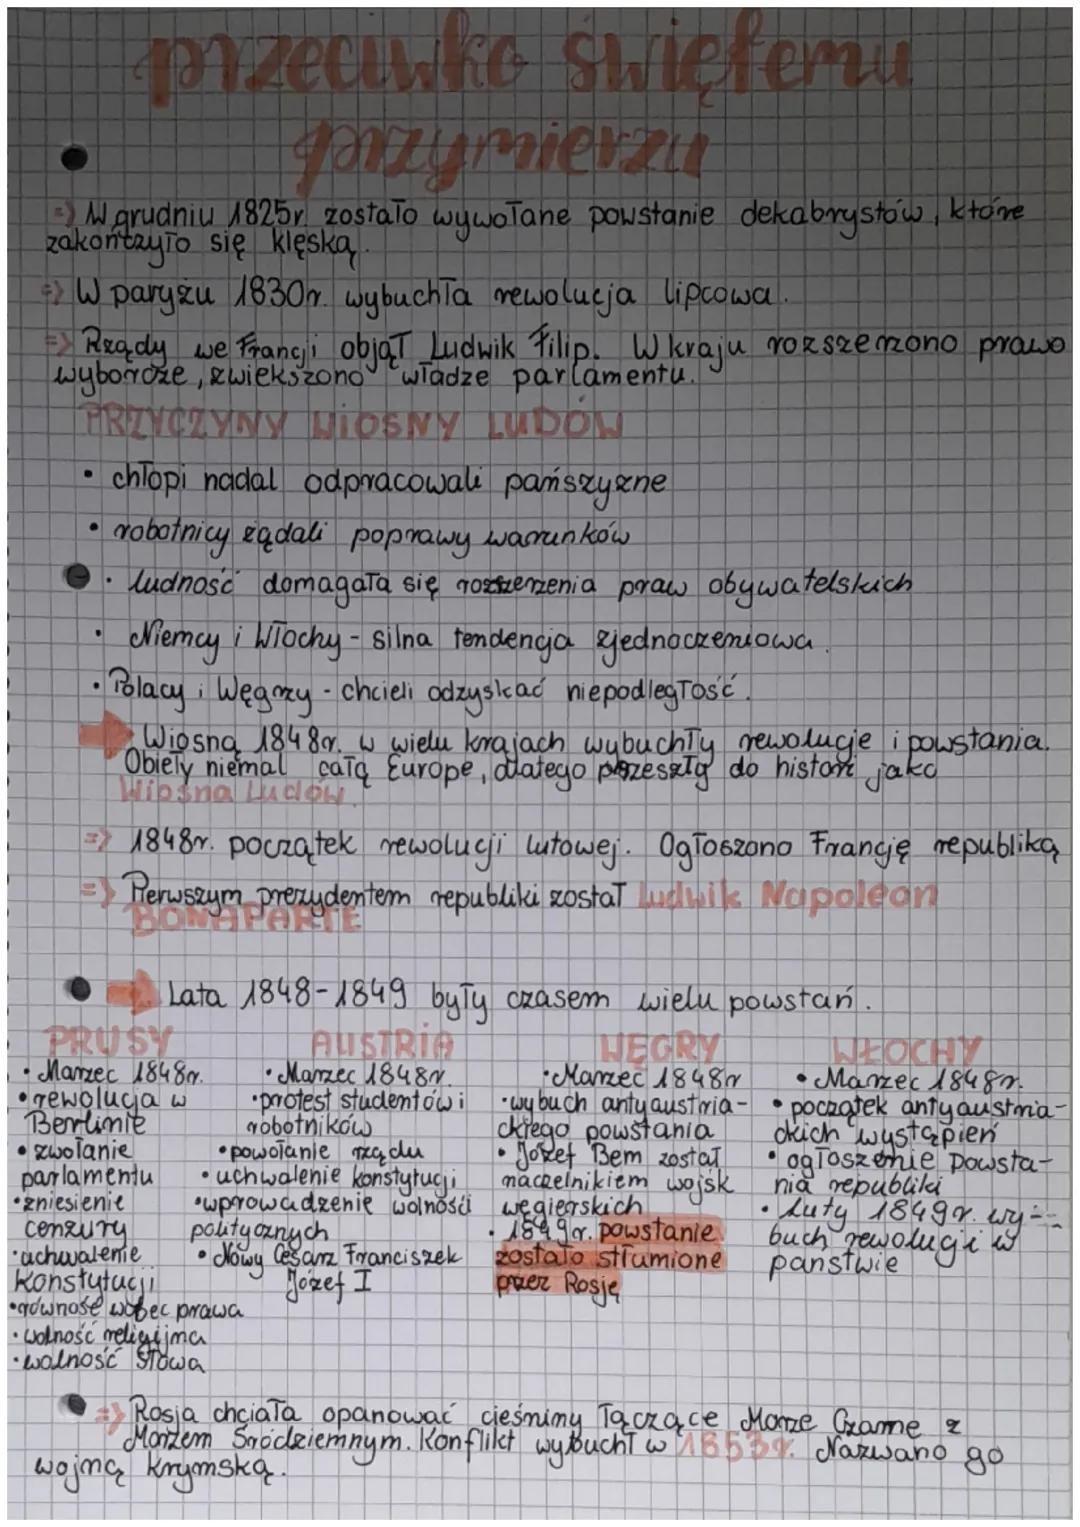 przeciwko świętemu
przymierzu
=> W grudniu 1825r. zostało wywołane powstanie dekabrystów, które
zakończyło się klęską.
=> W paryżu 1830r. wybuchła rewolucja lipcowa.
=> Rządy we Francji objął Ludwik Filip. W kraju rozszerzono prawo
wyborcze, zwiekszono władze parlamentu.
PRZYCZYNY WIOSNY LUDÓW
• chłopi nadal odpracowali pańszyzne
• robotnicy żądali poprawy warunków
• ludność domagała się rozszerzenia praw obywatelskich
• Niemcy i Włochy - silna tendencja zjednoczeniowa.
• Polacy i Węgrzy - chcieli odzyskać niepodległość.
Wiosną 1848r. w wielu krajach wybuchły rewolucje i powstania.
Obieły niemal całą Europe, dlatego przeszłą do histori jako
Wiosna Ludów
=> 1848r. początek rewolucji lutowej. Ogłoszono Francję republiką
=> Pierwszym prezydentem republiki został Ludwik Napoleon
BONAPARTE
Lata 1848-1849 były czasem wielu powstań.
PRUSY
• Marzec 1848r.
• rewolucja w
Berlinie
• zwołanie
parlamentu
• zniesienie
cenzury
• uchwalenie
Konstytucji
• równość wobec prawa
• wolność religijma
• wolność słowa
AUSTRIA
• Marzec 1848r.
• protest studentów i
robotników
• powołanie rządu
• uchwalenie konstytucji
• wprowadzenie wolności
politycznych
• Nowy Cesarz Franciszek
Józef I
WĘGRY
• Marzec 1848r
• wybuch antyaustria-
ckiego powstania
• Józef Bem został
naczelnikiem wojsk
węgierskich
• 1849r. powstanie
zostało stłumione
przez Rosję
WŁOCHY
• Marzec 1848r.
• początek antyaustria-
ckich wystąpień
• ogłoszenie powsta-
nia republiki
• Luty 1849r. wy-
buch rewolucji w
państwie
=> Rosja chciała opanować cieśniny łączące Morze Czarne z
Morzem Śródziemnym. Konflikt wybuchł w 1853r. Nazwano go
wojną krymską.